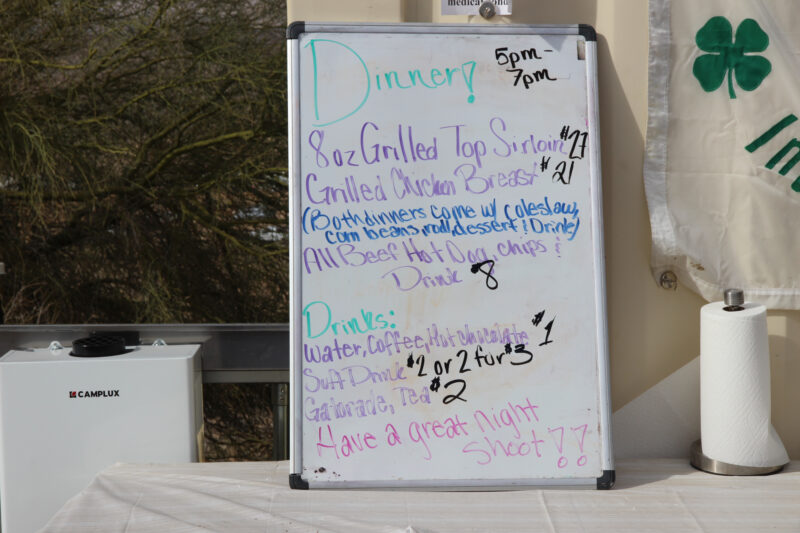 Dinner!
5pm-
7pm
8oz Grilled Top Sirloin $27
Grilled Chicken Breast $21
(Both dinners come w/ coleslaw,
corn beans, roll, dessert & Drink)
All Beef Hot Dog, chips &
Drink $8
Drinks:
Water, Coffee, Hot chocolate $1
Soft Drink $2 or 2 fur $3
Gatorade, Tea $2
Have a great night
shoot!!
CAMPLUX